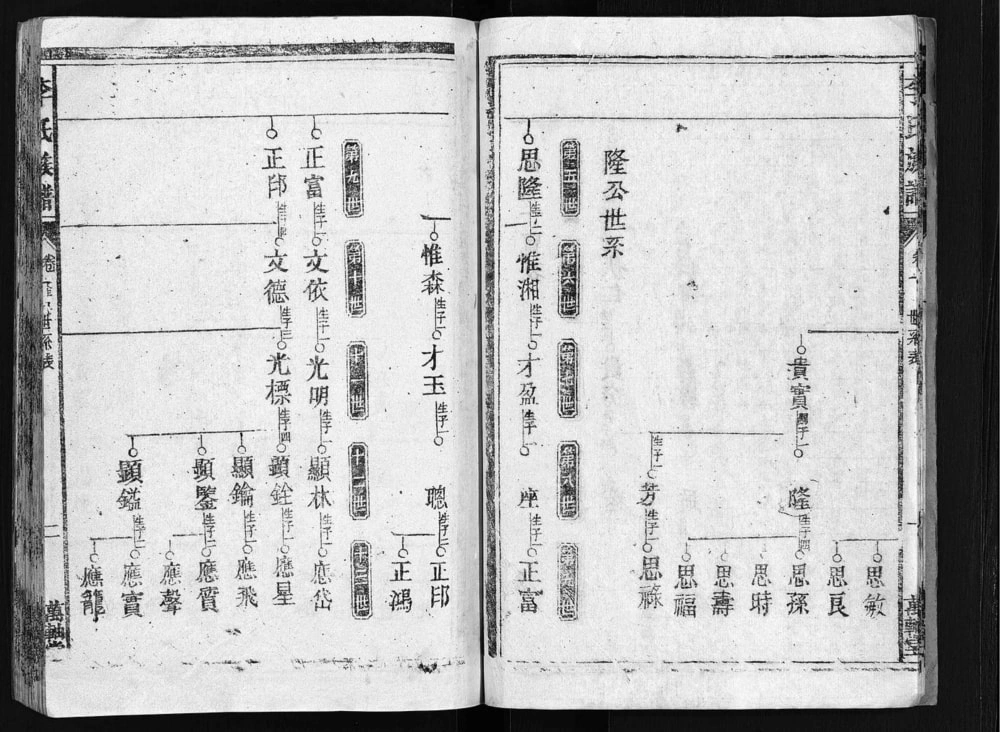 李氏族譜
卷
世系表
一
思敏
思良
貴實
生子一
隆
生子四
思孫
思時
思壽
思福
生子一
芳
生子一
思祿
隆公世系
第五世
第六世
第七世
第八世
第九世
思隆
生子二
惟湘
生子一
才盈
生子一
座
生子一
正富
惟森
生子一
才玉
生子一
聰
生子二
正印
正鴻
第九世
第十世
十一世
十二世
十三世
正富
生子一
文依
生子一
光明
生子一
顯林
生子一
應岱
正印
生子一
文德
生子三
光標
生子四
顯銓
生子一
應星
顯鑰
生子一
應飛
顯鑒
生子二
應質
應聲
顯鎰
生子二
應實
應龍
李氏族譜
卷
世系表
二